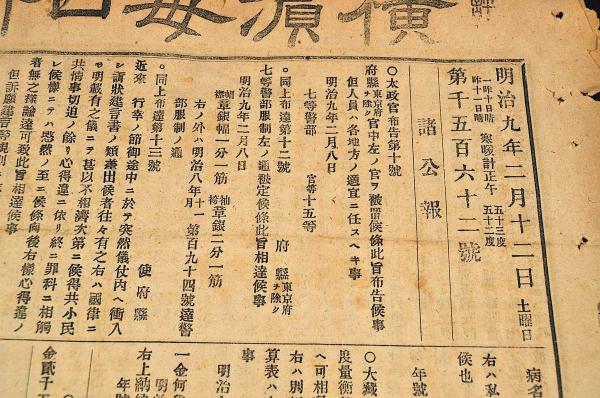 橫濱每日
明治九年二月十二日 土曜日
一昨十日晴 寒暖計正午 五十三度
昨十一日晴 五十二度
第千五百六十二號
諸公報
〇太政官布告第十號
府縣東京府ヲ除ク官中左ノ官ヲ被置候條此旨布告候事
但人員ハ各地方ノ適宜ニ任スヘキ事
明治九年二月八日
七等警部 官等十五等
〇同上布達第十二號 府縣東京府ヲ除ク
七等警部服制左ノ通被定候條此旨相達候事
明治九年二月八日
帽 章銀幅一分一筋 袖章銀二分一筋
右ノ外明治八年十一月第百九十四號達警
部服制ノ通
〇同上布達第十三號 使府縣
近來 行幸ノ節御途中ニ於テ突然儀仗内ヘ衝入
シ訴狀建言書ノ類差出候者往々有之右ハ國律ニ
モ明載有之儀ニテ甚以不相濟次第ニ候得共小民
共情事切迫ノ餘リ心得違ニ依リ終ニ罪科ニ相觸
レ候樣ニテハ愍然ノ至ニ候條向後右樣心得違ノ
者無之樣論達可致此旨相達候事
但訴願建言等規則
病名
右ハ私
候也
年號
〇大藏
度量衡
ヘ可相
右ハ別
算表ハ
事
明治
一金何
明治
右上納
年號
金貳千五